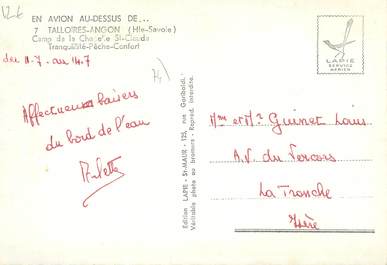 EN AVION AU-DESSUS DE...
7 TALLOIRES-ANGON (Hte-Savoie)
Camp de la Chapelle St-Claude
Tranquillité-Pêche-Confort
Affectueux baisers
du bord de l'eau
Arlette
Edition LAPIE - St-MAUR - 125, rue Garibaldi.
Véritable photo au bromure - Reprod. interdite.
LAPIE
SERVICE
AERIEN
Mme et Mr Guinet Louis
A.V. du Vercors
La Tronche
Isère